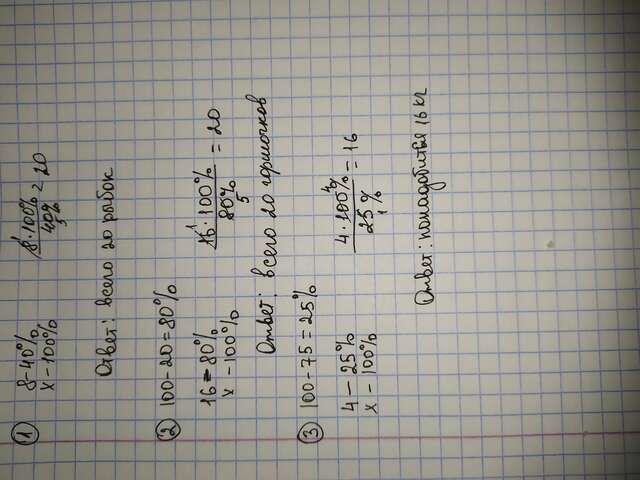 ① 8-40%
x-100%
8·100% / 40% = 20
5
Ответ: всего 20 рыбок
② 100-20=80%
16-80%
x-100%
16·100% / 80% = 20
1
5
Ответ: всего 20 горшочков
③ 100-75=25%
4-25%
x-100%
4·100% / 25% = 16
4
1
Ответ: понадобиться 16 кг